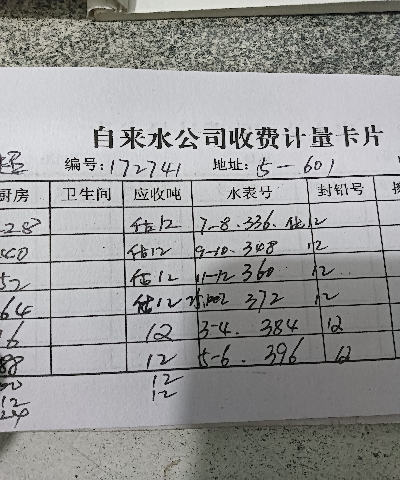 自来水公司收费计量卡片
编号:172741 地址:5-601
厨房 卫生间 应收吨 水表号 封铅号
28 估12 7-8.336.估12
估12 9-10.348 12
52 估12 11-12 360 12
64 估12 372 12
76 12 3-4.384 12
88 12 5-6.396 12
12
12 12